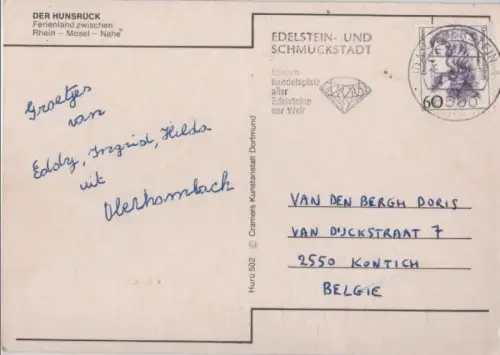 DER HUNSRÜCK
Ferienland zwischen
Rhein – Mosel – Nahe
Groetjes
van
Eddy, Ingrid, Hilda
uit
Oberhambach
Hunü 502 © Cramers Kunstanstalt Dortmund
EDELSTEIN- UND
SCHMUCKSTADT
handelsplatz
aller
Edelsteine
der Welt
60
VAN DEN BERGH DORIS
VAN DIJCKSTRAAT 7
2550 KONTICH
BELGIE